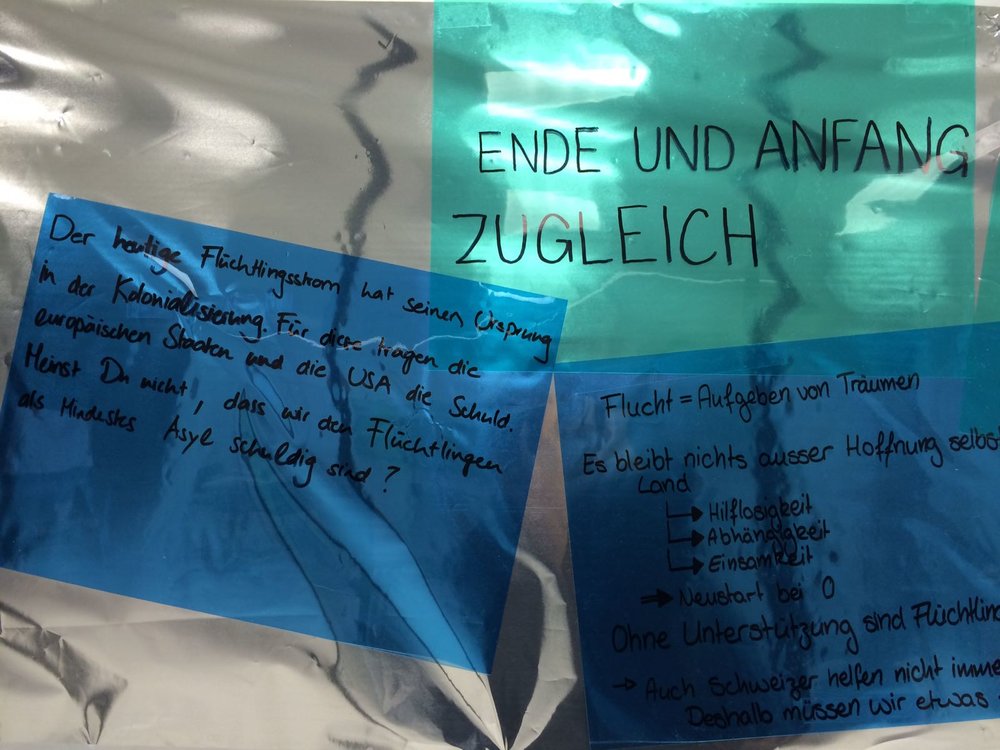 ENDE UND ANFANG
ZUGLEICH
Der heutige Flüchtlingsstrom hat seinen Ursprung
in der Kolonialisierung. Für diese tragen die
europäischen Staaten und die USA die Schuld.
Meinst Du nicht, dass wir den Flüchtlingen
als Mindestes Asyl schuldig sind?
Flucht = Aufgeben von Träumen
Es bleibt nichts ausser Hoffnung selbst
Land
→ Hilflosigkeit
→ Abhängigkeit
→ Einsamkeit
⇒ Neustart bei 0
Ohne Unterstützung sind Flüchtlin
→ Auch Schweizer helfen nicht imme
Deshalb müssen wir etwas